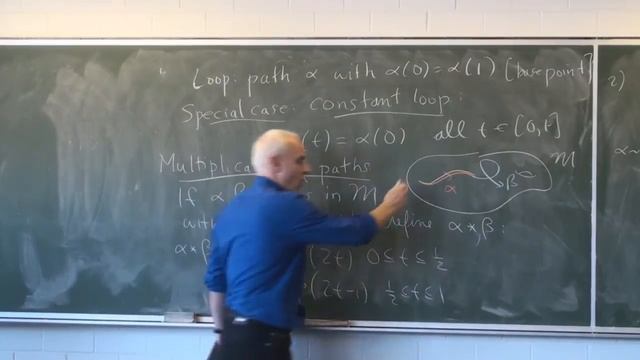 Loop: path α with α(0) = α(1) [basepoint]
Special case: constant loop:
(t) = α(0) all t ∈ [0,1]
paths
If α in M
M
α
β
refine α * β:
α * β (2t) 0 ≤ t ≤ 1/2
(2t-1) 1/2 ≤ t ≤ 1
2)
α~